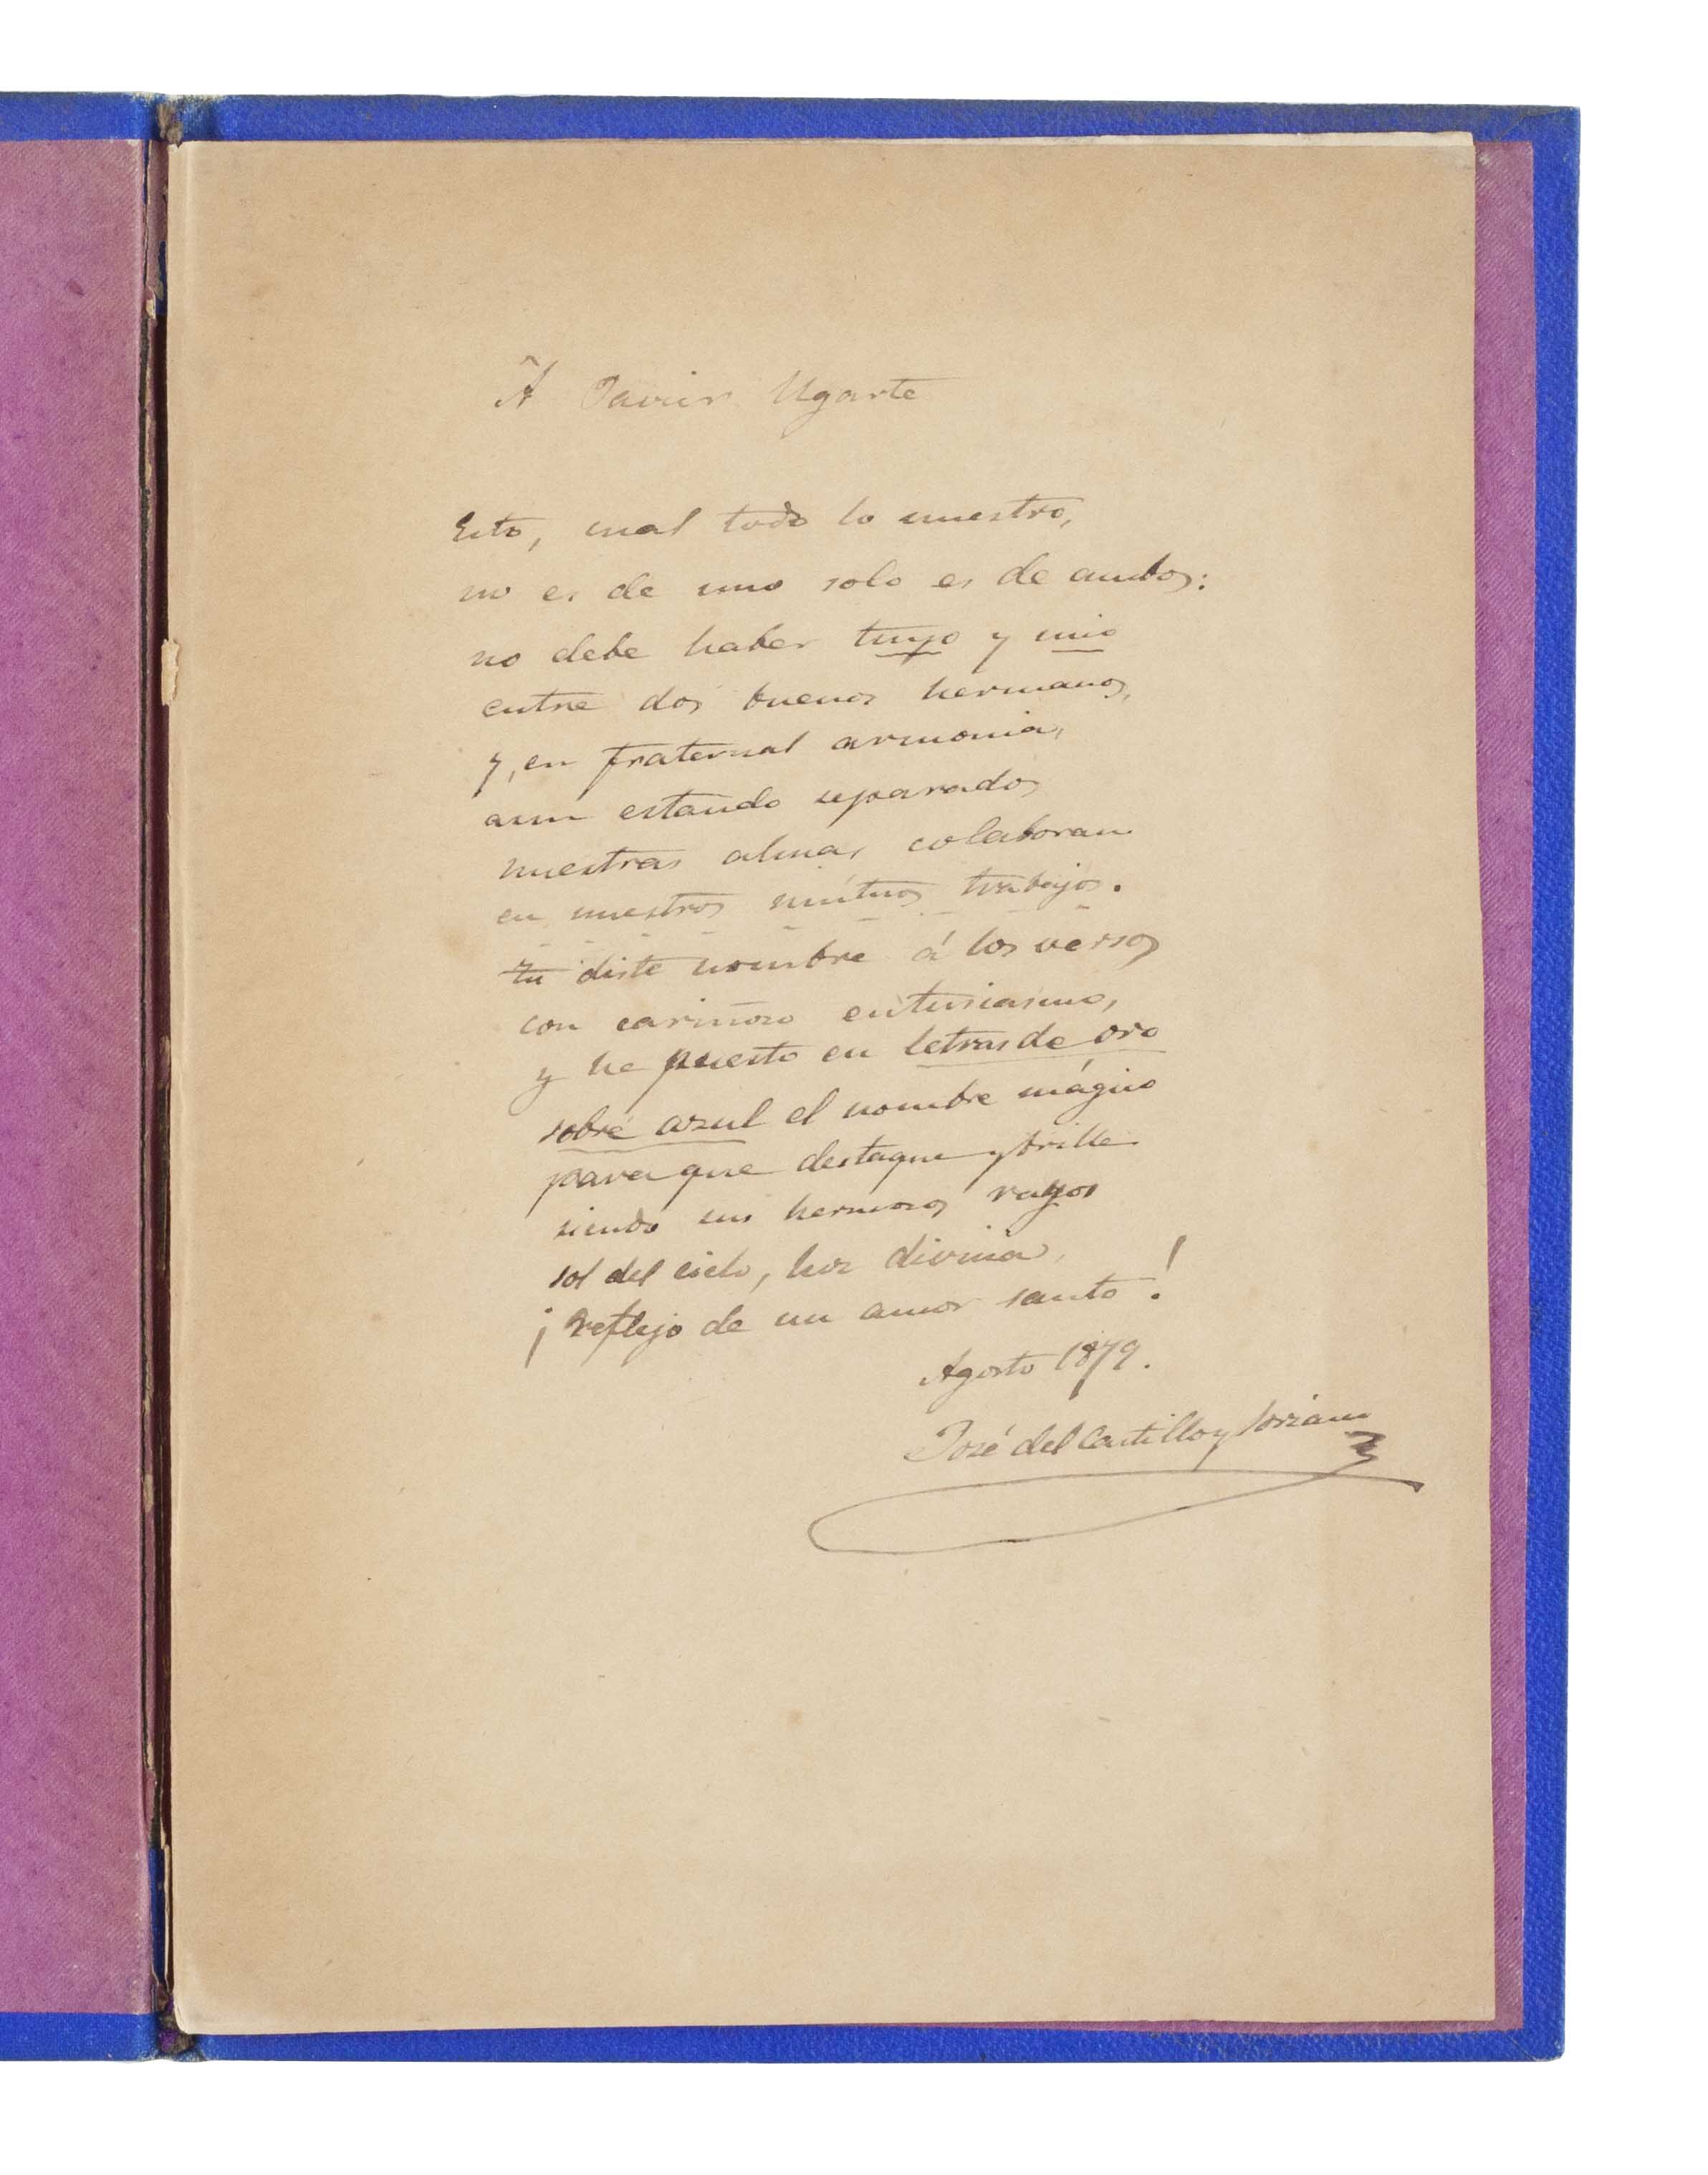 Á Javier Ugarte
Esto, cual todo lo nuestro,
no es de uno solo es de ambos:
no debe haber tuyo y mio
entre dos buenos hermanos,
y, en fraternal armonia,
aun estando separados
nuestras almas colaboran
en nuestros mútuos trabajos.
tu diste nombre á los versos
con cariñoso entusiasmo,
y he puesto en letras de oro
sobre azul el nombre mágico
para que destaque y brille
siendo sus hermosos rayos
sol del cielo, luz divina,
¡Reflejo de un amor santo!
Agosto 1879.
José del Castillo y Soriano